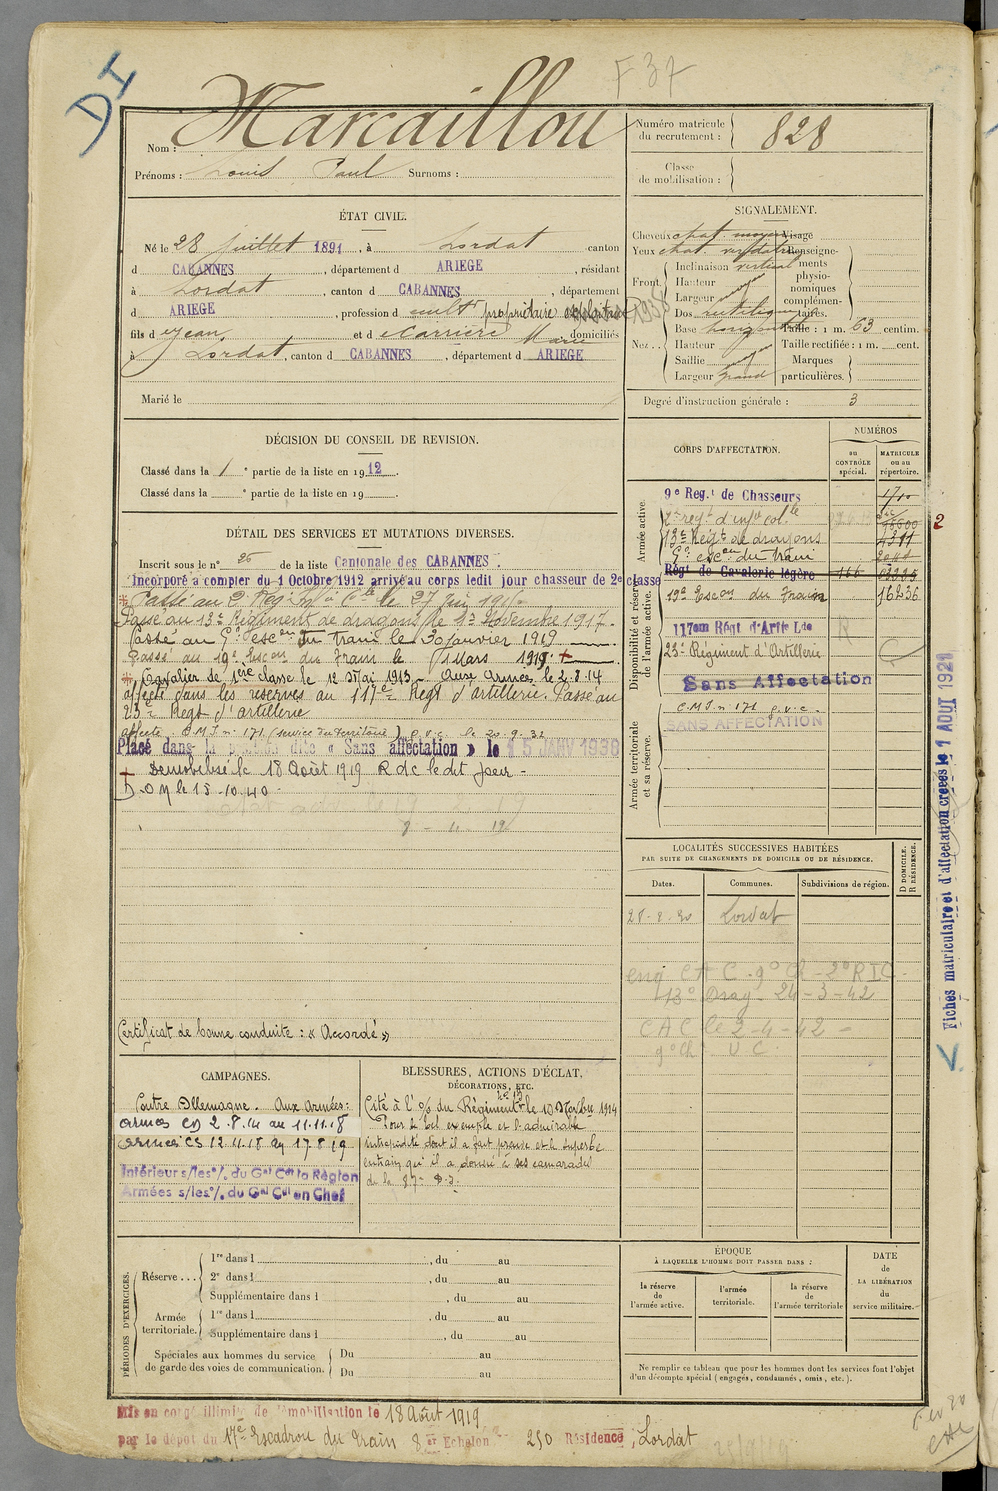 DI
F 37
Nom : Marcaillou
Prénoms : Louis Paul Surnoms :
Numéro matricule du recrutement : 828
Classe de mobilisation :
ÉTAT CIVIL.
Né le 28 juillet 1891, à Lordat canton
d CABANNES, département d ARIEGE, résidant
à Lordat, canton d CABANNES, département
d ARIEGE, profession d cultr propriétaire
fils d Jean et d Carrière Marie domiciliés
à Lordat, canton d CABANNES, département d ARIEGE
Marié le
SIGNALEMENT.
Cheveux chat. moyen Visage
Yeux chat. verdâtre Renseigne-
Front. Inclinaison vertical ments
Hauteur physio-
Largeur nomiques
complémen-
Nez.. Dos rectiligne taires.
Base horizontale Taille : 1 m. 63 centim.
Hauteur Taille rectifiée : 1 m. cent.
Saillie Marques
Largeur grand particulières.
Degré d'instruction générale : 3
DÉCISION DU CONSEIL DE REVISION.
Classé dans la 1 e partie de la liste en 1912.
Classé dans la e partie de la liste en 19
DÉTAIL DES SERVICES ET MUTATIONS DIVERSES.
Inscrit sous le n° 26 de la liste Cantonale des CABANNES.
Incorporé à compter du 1 Octobre 1912 arrivé au corps ledit jour chasseur de 2e classe
Passé au 2e Reg. Inf. Cle le 27 Juin 191
Passé au 13e Régiment de dragons le 4 Novembre 1917.
Passé au 9e escon du Train le 30 Janvier 1919
Passé au 19e Escon du Train le 1 Mars 1919.
Cavalier de 1ère classe le 12 Mai 1913. Aux Armées le 2.8.14
affecté dans les réserves au 117e Regt d'artillerie. Passé au
23e Regt d'artillerie
affecté C.M.J. n° 171 (service du territoire) p.v.c. le 20.9.32
Placé dans la position dite « Sans affectation » le 15 JANV 1938
Démobilisé le 18 Août 1919 R d c le dit jour -
D.O.M le 15-10-40
Certificat de bonne conduite : « Accordé »
CORPS D'AFFECTATION.
NUMÉROS
au CONTRÔLE spécial.
MATRICULE ou au répertoire.
Armée active.
9e Reg.t de Chasseurs
2e regt d'infie colle
13e Régt de dragons 4311
9e escon du train
Disponibilité et réserve de l'armée active.
Régt de Cavalerie légère 166
19e Escon du Train 16236
117em Régt d'Artie Lde
23e Régiment d'Artillerie
Sans Affectation
Armée territoriale et sa réserve.
C.M.J. n° 171 p.v.c.
SANS AFFECTATION
2
Fiches matriculaire et d'affectation créées le 1 AOUT 1921
LOCALITÉS SUCCESSIVES HABITÉES
PAR SUITE DE CHANGEMENTS DE DOMICILE OU DE RÉSIDENCE.
Dates. Communes. Subdivisions de région. D DOMICILE. R RÉSIDENCE.
Lordat
CAC - 9° Ch - 2° RIC
13° Drag - 24-3-42
CAC le 2-4-42 -
9° Ch U C
CAMPAGNES.
Contre Allemagne. Aux Armées :
Armées CD 2.8.14 au 11.11.18
Armées CS 12.11.18 au 17.8.19
Intérieur s/les °/. du Gal Ct la Région
Armées s/les °/. du Gal Ct en Chef
BLESSURES, ACTIONS D'ÉCLAT,
DÉCORATIONS, ETC.
Cité à l'o/ du Régiment le 10 Novbre 1914
Pour le bel exemple et l'admirable
intrépidité dont il a fait preuve et le superbe
entrain qu'il a donné à ses camarades
de la 87e D.I.
PÉRIODES D'EXERCICES.
Réserve ...
1re dans l , du au
2e dans l , du au
Supplémentaire dans l , du au
Armée territoriale.
1re dans l , du au
Supplémentaire dans l , du au
Spéciales aux hommes du service de garde des voies de communication.
Du au
Du au
ÉPOQUE
À LAQUELLE L'HOMME DOIT PASSER DANS :
la réserve de l'armée active.
l'armée territoriale.
la réserve de l'armée territoriale
DATE de LA LIBÉRATION du service militaire.
Ne remplir ce tableau que pour les hommes dont les services font l'objet
d'un décompte spécial (engagés, condamnés, omis, etc.).
Mis en congé illimité de démobilisation le 18 Août 1919
par le dépôt du 17e Escadron du Train 8 er Echelon 250 Résidence ; Lordat